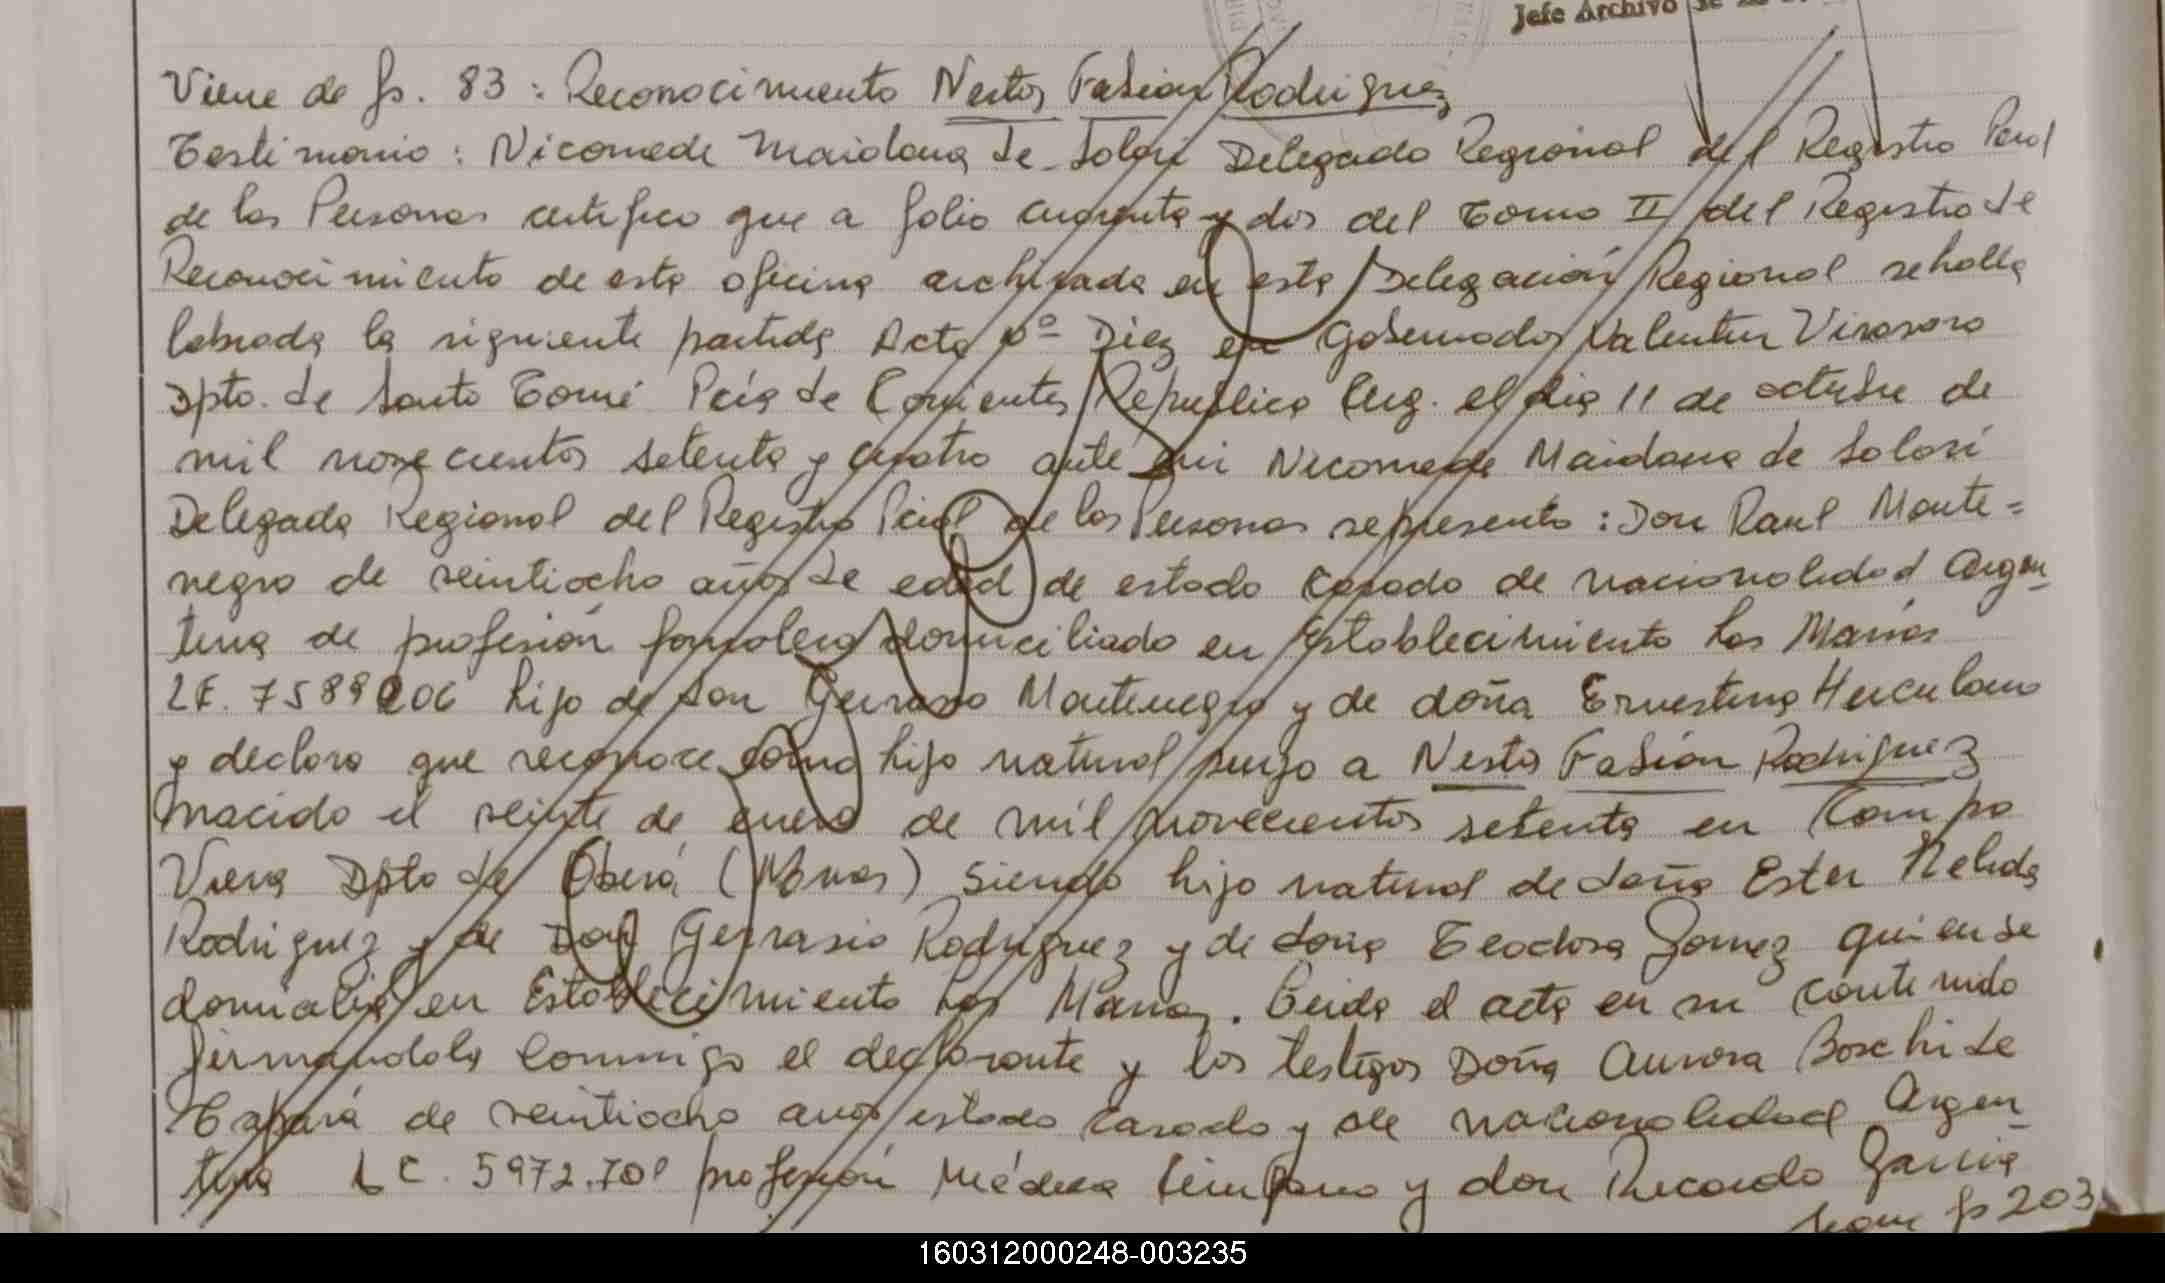 Jefe Archivo
Viene de fs. 83 : Reconocimiento Nestor Fabian Rodriguez
Testimonio : Nicomede Maidana de Solari Delegado Regional del Registro Pcial
de las Personas certifico que a folio cuarenta y dos del Tomo II del Registro de
Reconocimiento de esta oficina archivada en esta Delegación Regional se halla
labrada la siguiente partida Acta Nº Diez en Gobernador Valentin Virasoro
Dpto. de Santo Tomé Pcia de Corrientes Republica Arg. el dia 11 de octubre de
mil novecientos setenta y cuatro ante mi Nicomede Maidana de Solari
Delegada Regional del Registro Pcial de las Personas represento : Don Raul Monte=
negro de veintiocho años de edad de estado casado de nacionalidad Argen-
tina de profesión domiciliado en Establecimiento Las Marias
LE. 7589206 hijo de don Gervasio Montenegro y de doña Ernestina Herculano
y declara que reconoce como hijo natural suyo a Nestor Fabian Rodriguez
nacido el veinte de enero de mil novecientos setenta en Campo
Viera Dpto de Oberá (Mnes) siendo hijo natural de doña Ester Nelida
Rodriguez y de Don Gervasio Rodriguez y de doña Teodora Gomez quien se
domicilia en Establecimiento Las Marias. Leida el acta en su contenido
firmandola conmigo el declarante y los testigos Doña Aurora Boschi de
de veintiocho años estado casado y de nacionalidad Argen-
tina LC. 5972.701 profesión Médica y don Ricardo Garcia
sigue fs 203
160312000248-003235